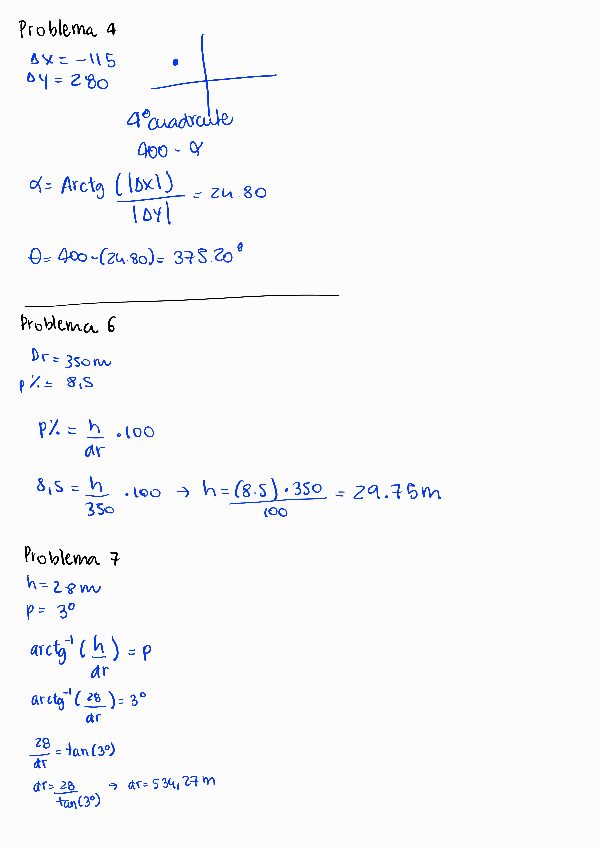 Problema 4
Δx = -115
Δy = 280
4º cuadrante
400 - α
α = Arctg (|Δx|) / |Δy| = 24.80
θ = 400 - (24.80) = 375.20ᵍ
Problema 6
Dr = 350m
p% = 8,5
p% = h/dr · 100
8,5 = h/350 · 100 → h = (8.5) · 350 / 100 = 29.75m
Problema 7
h = 28m
p = 3º
arctg⁻¹ (h/dr) = p
arctg⁻¹ (28/dr) = 3º
28/dr = tan(3º)
dr = 28/tan(3º) → dr = 534,27m